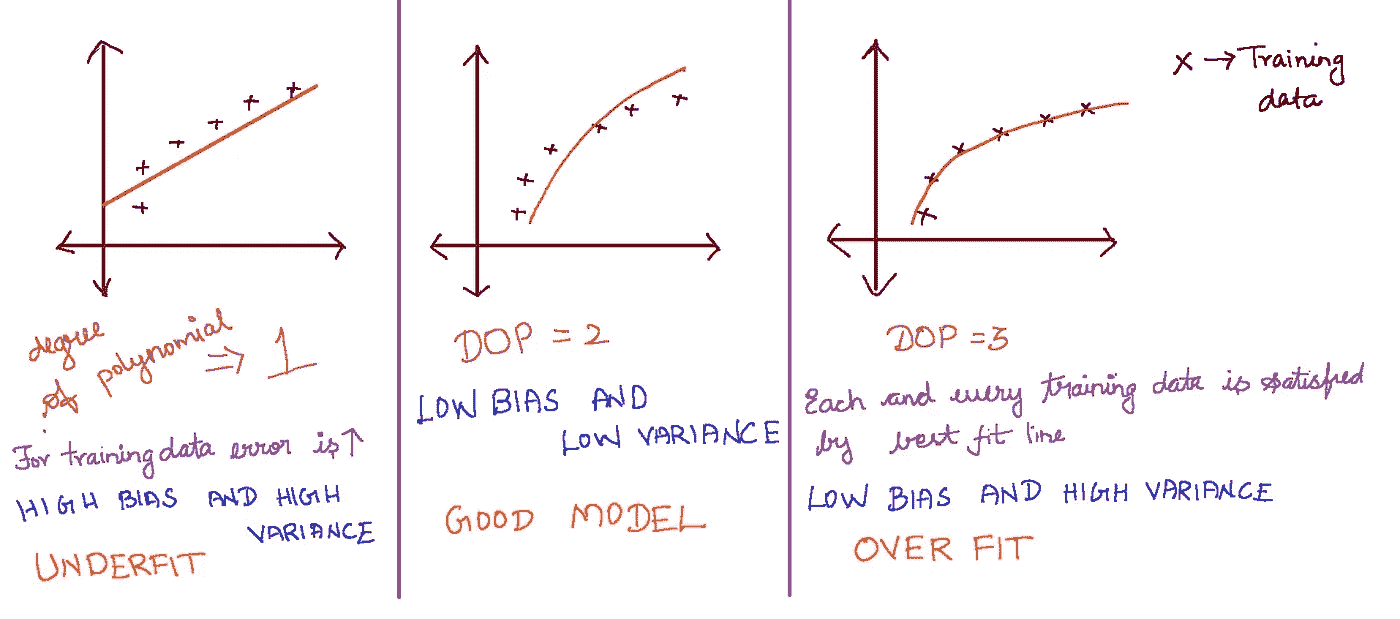 degree
of polynomial ⇒ 1
For training data error is ↑
HIGH BIAS AND HIGH
VARIANCE
UNDERFIT
DOP = 2
LOW BIAS AND
LOW VARIANCE
GOOD MODEL
x → Training
data
DOP = 3
Each and every training data is satisfied
by best fit line
LOW BIAS AND HIGH VARIANCE
OVER FIT